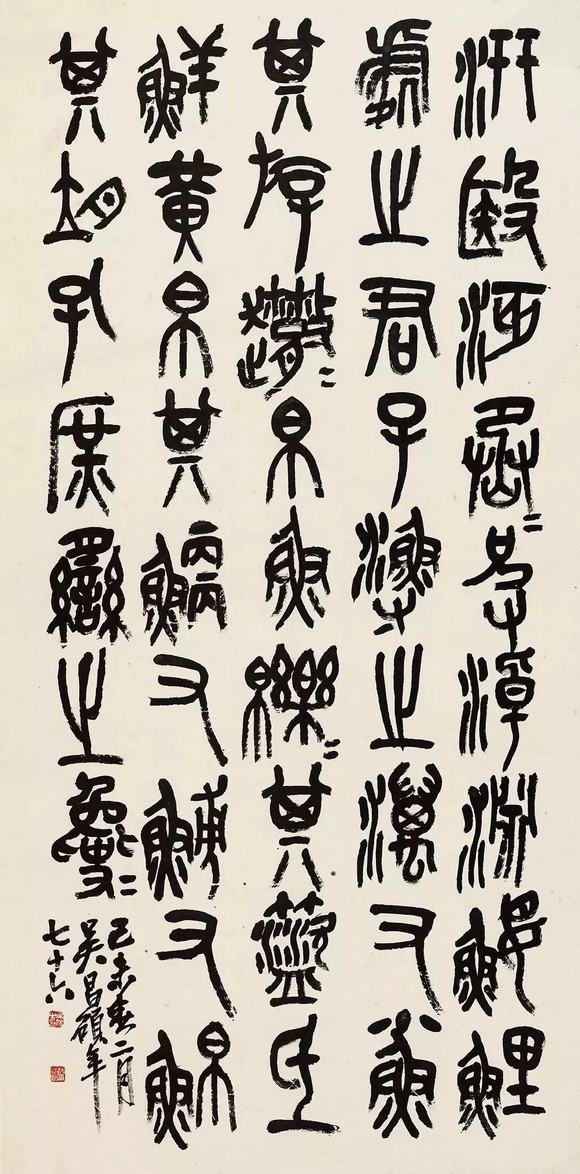 汧殹沔丞皮淖淵鰋鯉
處之君子漁之澫又小魚
其斿帛魚皪其盜氐
鮮黃帛其鯾又䱻又鮊
其孔庶臠之
己未春二月
吳昌碩年
七十六